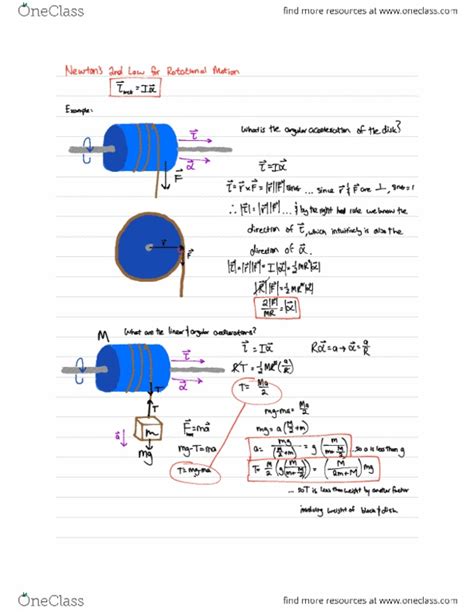 OneClass
find more resources at www.oneclass.com
Newton's 2nd Law for Rotational Motion
τ⃗net = Iα⃗
Example:
What is the angular acceleration of the disk?
τ⃗
α⃗
F⃗
τ⃗ = Iα⃗
τ⃗ = r⃗ × F⃗ = |r⃗||F⃗| sinθ ... since r⃗ & F⃗ are ⊥, sinθ = 1
∴ |τ⃗| = |r⃗||F⃗| ... & by the right hand rule we know the
direction of τ⃗, which intuitively is also the
direction of α⃗.
r⃗
F⃗
|τ⃗| = |r⃗||F⃗| = I|α⃗| = ½MR²|α⃗|
|R||F⃗| = ½MR²|α⃗|
2|F⃗|/MR = |α⃗|
What are the linear & angular accelerations?
M
τ⃗
α⃗
τ⃗ = Iα⃗
Rα⃗ = a → α⃗ = a/R
RT = ½MR²(a/R)
T = Ma/2
T
T
m
mg
a⃗
F⃗net = ma⃗
mg-T=ma
T=mg-ma
mg-ma = Ma/2
mg = a(M/2 + m)
a = mg/(M/2 + m) = g(m/(m + M/2)) ... so a is less than g
T = M/2 (g(m/(m + M/2))) = (M/(2m+M)) mg
... so T is less than weight by another factor
involving weight of block & disk
OneClass
find more resources at www.oneclass.com